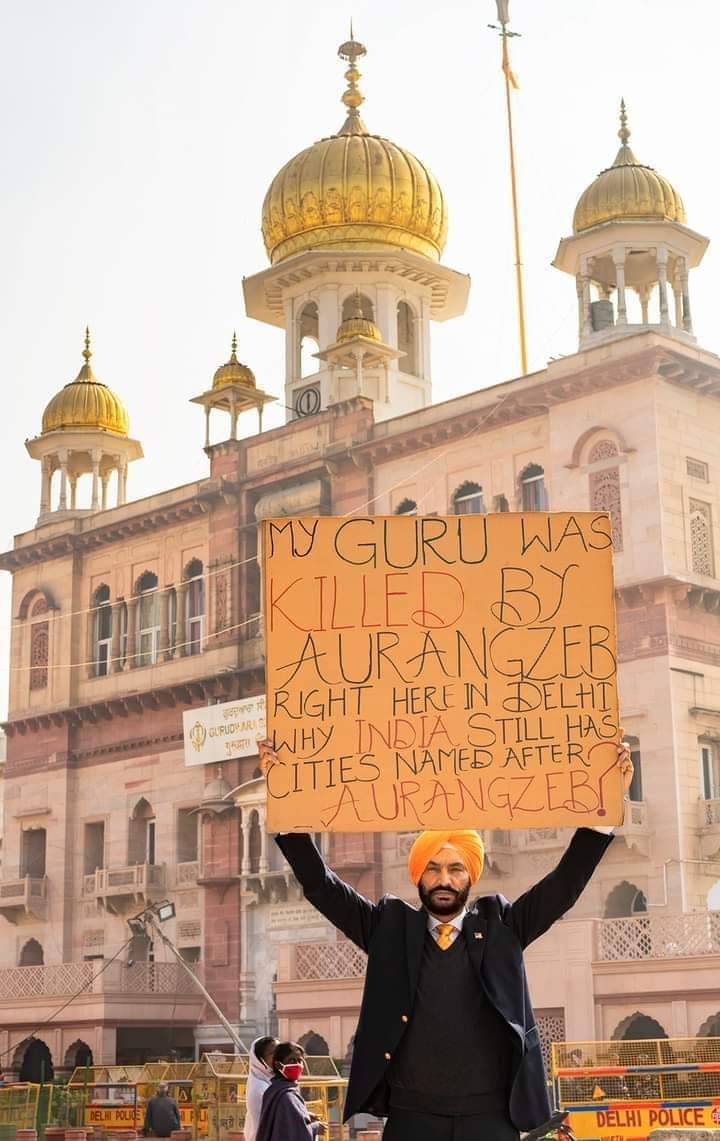 MY GURU WAS
KILLED BY
AURANGZEB
RIGHT HERE IN DELHI
WHY INDIA STILL HAS
CITIES NAMED AFTER
AURANGZEB?
GURUDWARA
DELHI POLICE
DELHI POLICE